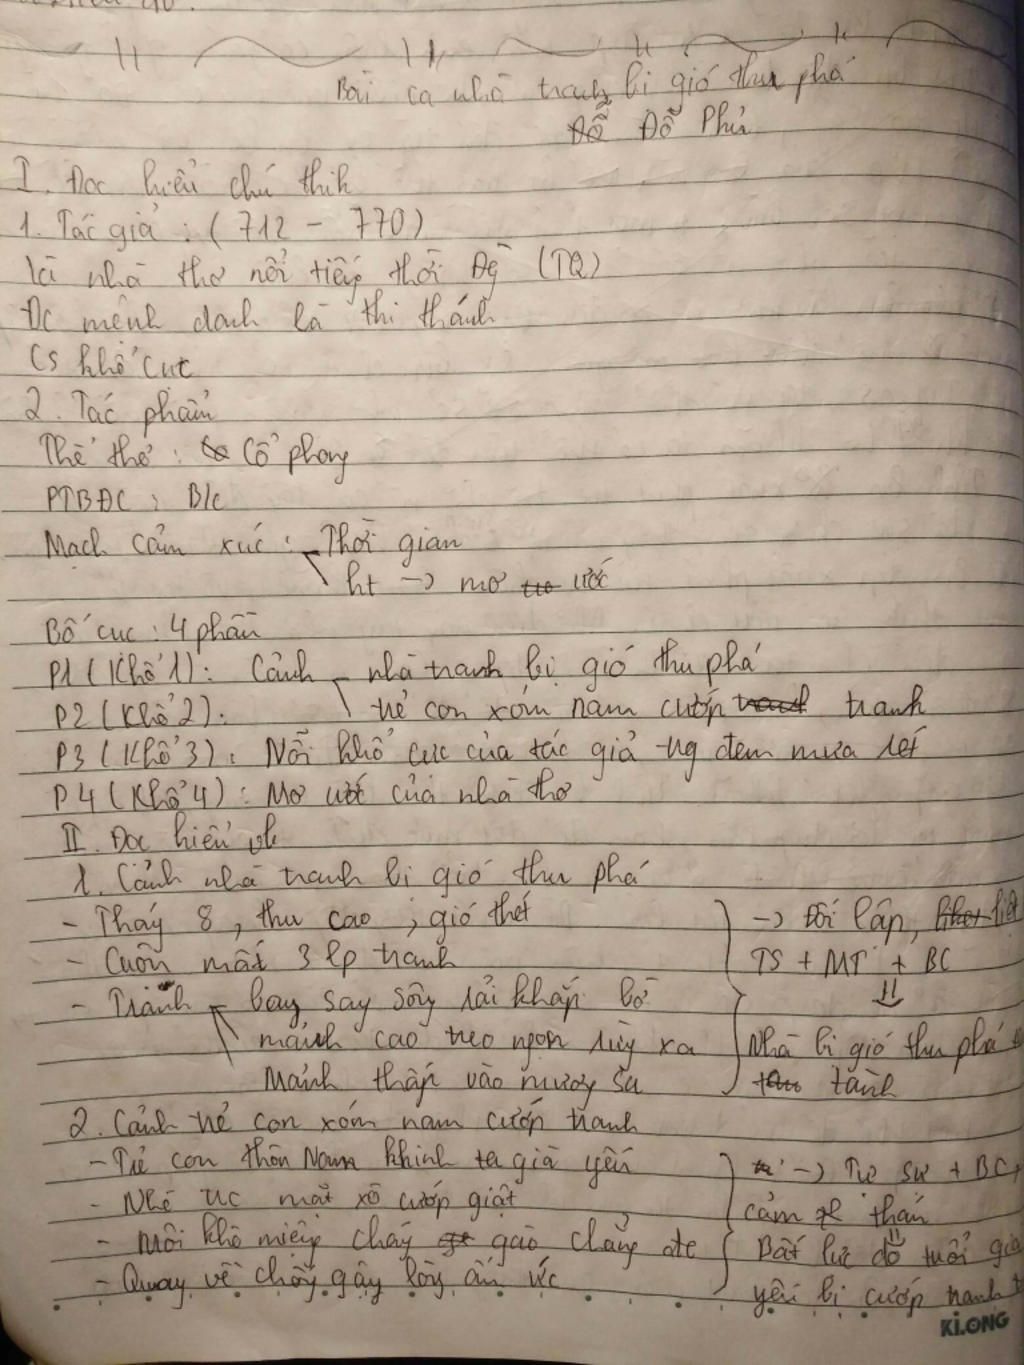 Bài ca nhà tranh bị gió thu phá
Đỗ Phủ
I. Đọc hiểu chú thíh
1. Tác giả : ( 712 - 770 )
là nhà thơ nổi tiếg thời Đg (TQ)
Đc mệnh danh là thi thánh
Cs khổ cực
2. Tác phẩm
Thể thơ : Cổ phong
PTBĐC : B/c
Mạch cảm xúc : Thời gian
ht -> mơ ước
Bố cục : 4 phần
P1 ( Khổ 1 ) : Cảnh nhà tranh bị gió thu phá
P2 ( Khổ 2 ) : trẻ con xóm nam cướp tranh
P3 ( Khổ 3 ) : Nỗi khổ cực của tác giả trg đêm mưa rét
P4 ( Khổ 4 ) : Mơ ước của nhà thơ
II. Đọc hiểu vb
1. Cảnh nhà tranh bị gió thu phá
- Thág 8, thu cao, gió thét -> Đối lập,
- Cuộn mất 3 lp tranh TS + MT + BC
- Tranh bay sag sôg rải khắp bờ
mảnh cao treo ngọn rừg xa Nhà bị gió thu phá
Mảnh thấp vào mươg sa tành
2. Cảnh trẻ con xóm nam cướp tranh
- Trẻ con thôn Nam khinh ta già yếu -> Tự sự + BC +
- Nhè trc mặt xô cướp giật cảm thán
- Môi khô miệg cháy gào chẳg đc Bất lực do tuổi già
- Quay về chốg gậy lòg ấm ức yếu bị cướp tranh
KLONG